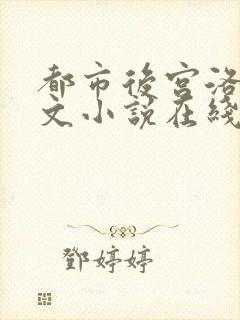 都市後宮洛
文小說在綫
鄧婷婷